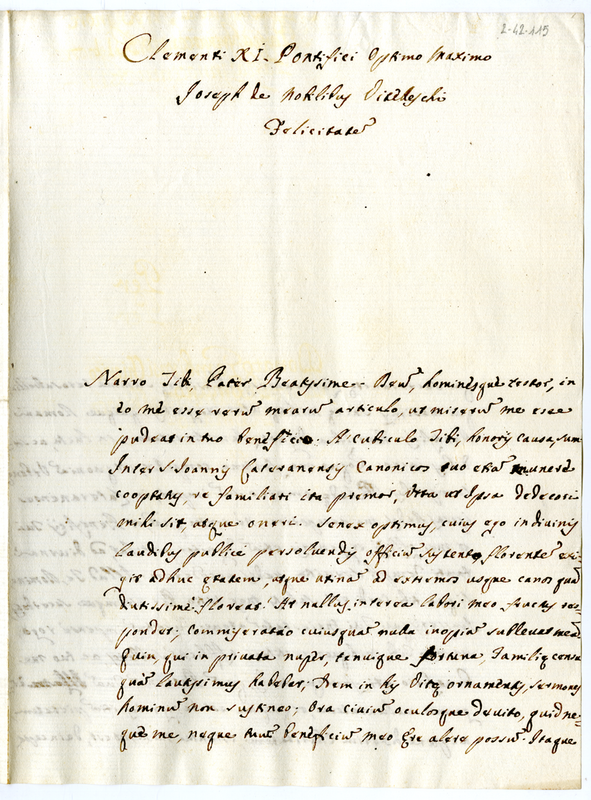 2-42-115
Clementi XI. Pontifici Optimo Maximo
Joseph de Nobilibus Vitelleschi
Felicitatē
Narro Tibi, Pater Beatissime. Deū, hominesque testor, in
eo me esse rerū mearū articulo, ut miserū me esse
pudeat in tuo beneficio. A Cubiculo Tibi, honoris causa, sum
Inter S. Joannis Lateranensis Canonicos tuo etiā munere
cooptatus, re familiari ita premor, ut ipsa dedecori
mihi sit, atque oneri. Senex optimus, cuius ego in divinis
laudibus publice persolvendis officiū sustento, florentē exi-
git adhuc ętatem, atque utinā ad extremos usque canos quā
diutissime floreat! At nullus interea labori meo fructus res-
pondet; commiseratio cuiusquā nulla inopiā sublevat meā
quin, qui in privata nuper, tenuique fortuna, Familię censu
quā lautissimus haberer, Rem in his Vitę ornamentis, sermones
hominū non sustineo; Ora civiū oculosque devito, quid ne-
que me, neque tuū beneficiū meo ęre alere possū. Itaque